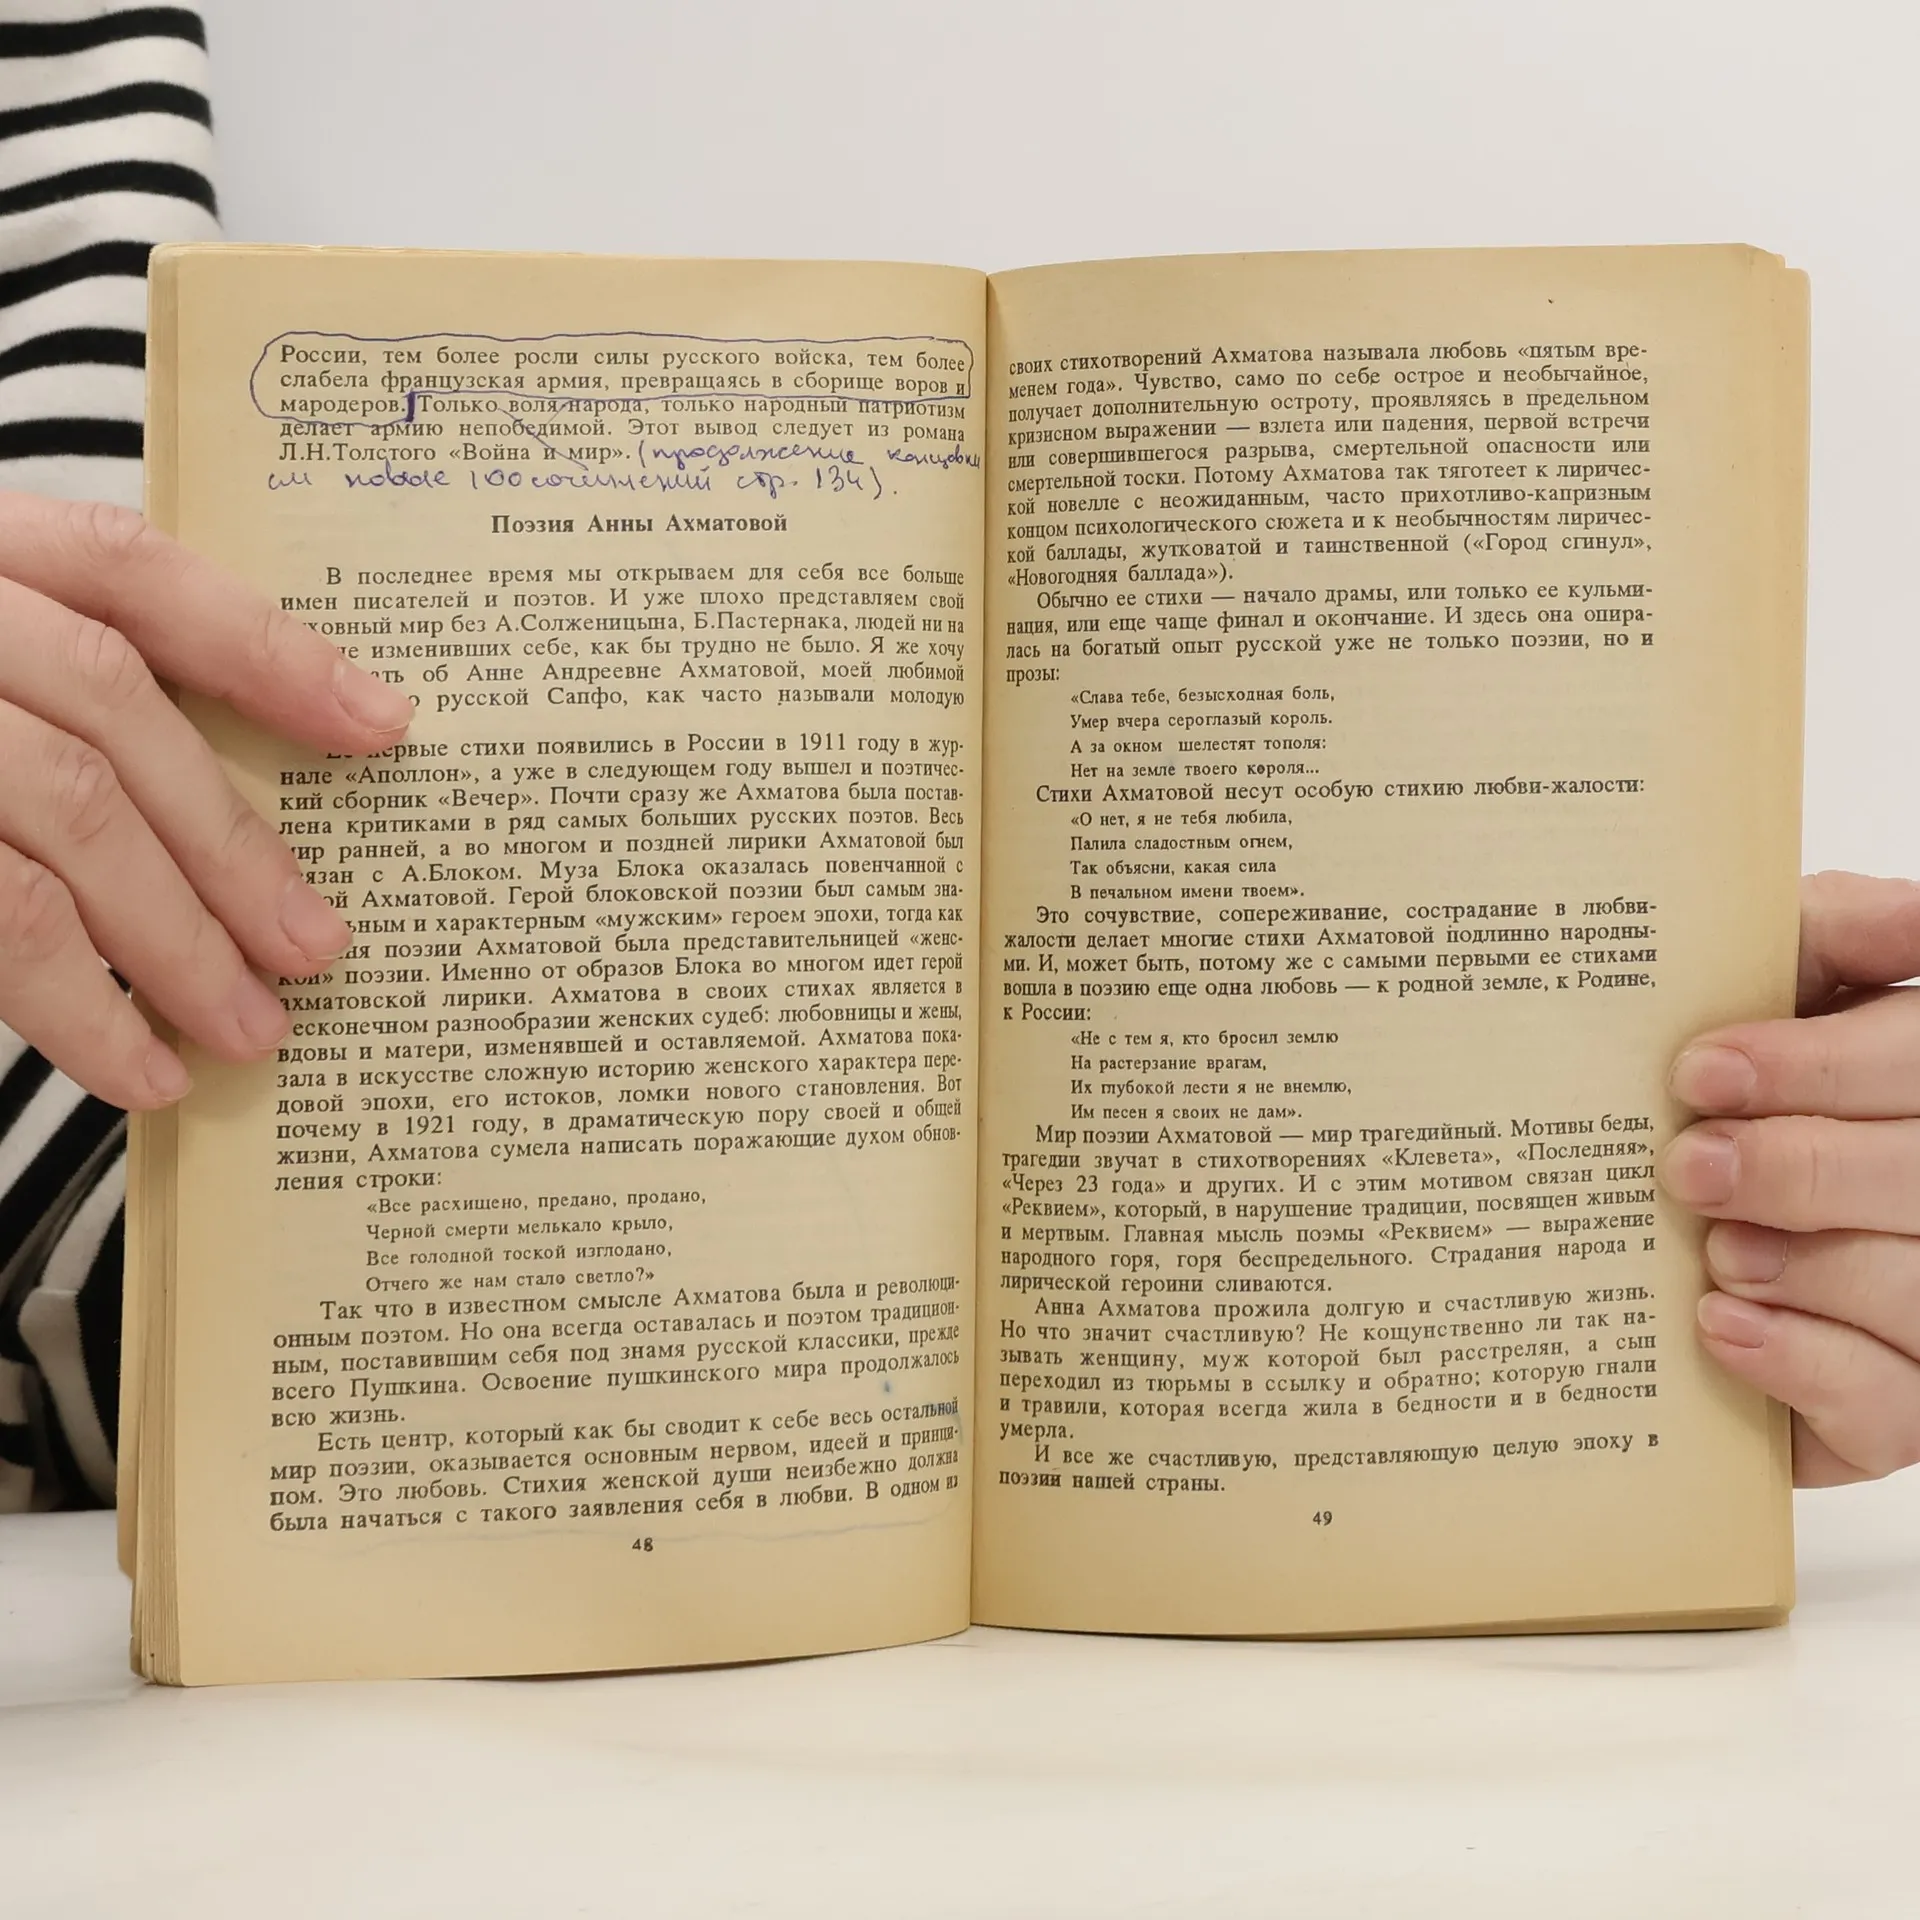 России, тем более росли силы русского войска, тем более
слабела французская армия, превращаясь в сборище воров и
мародеров. Только воля народа, только народный патриотизм
делает армию непобедимой. Этот вывод следует из романа
Л.Н.Толстого «Война и мир». (продолжение концовки
см новые 100 сочинений стр. 134).
Поэзия Анны Ахматовой
В последнее время мы открываем для себя все больше
имен писателей и поэтов. И уже плохо представляем свой
ховный мир без А.Солженицына, Б.Пастернака, людей ни на
не изменивших себе, как бы трудно не было. Я же хочу
ать об Анне Андреевне Ахматовой, моей любимой
о русской Сапфо, как часто называли молодую
первые стихи появились в России в 1911 году в жур-
нале «Аполлон», а уже в следующем году вышел и поэтичес-
кий сборник «Вечер». Почти сразу же Ахматова была постав-
лена критиками в ряд самых больших русских поэтов. Весь
мир ранней, а во многом и поздней лирики Ахматовой был
язан с А.Блоком. Муза Блока оказалась повенчанной с
ой Ахматовой. Герой блоковской поэзии был самым зна-
ьным и характерным «мужским» героем эпохи, тогда как
ня поэзии Ахматовой была представительницей «женс-
кой» поэзии. Именно от образов Блока во многом идет герой
ахматовской лирики. Ахматова в своих стихах является в
есконечном разнообразии женских судеб: любовницы и жены,
вдовы и матери, изменявшей и оставляемой. Ахматова пока-
зала в искусстве сложную историю женского характера пере-
довой эпохи, его истоков, ломки нового становления. Вот
почему в 1921 году, в драматическую пору своей и общей
жизни, Ахматова сумела написать поражающие духом обнов-
ления строки:
«Все расхищено, предано, продано,
Черной смерти мелькало крыло,
Все голодной тоской изглодано,
Отчего же нам стало светло?»
Так что в известном смысле Ахматова была и революци-
онным поэтом. Но она всегда оставалась и поэтом традицион-
ным, поставившим себя под знамя русской классики, прежде
всего Пушкина. Освоение пушкинского мира продолжалось
всю жизнь.
Есть центр, который как бы сводит к себе весь остальной
мир поэзии, оказывается основным нервом, идеей и принци-
пом. Это любовь. Стихия женской души неизбежно должна
была начаться с такого заявления себя в любви. В одном из
48
своих стихотворений Ахматова называла любовь «пятым вре-
менем года». Чувство, само по себе острое и необычайное,
получает дополнительную остроту, проявляясь в предельном
кризисном выражении — взлета или падения, первой встречи
или совершившегося разрыва, смертельной опасности или
смертельной тоски. Потому Ахматова так тяготеет к лиричес-
кой новелле с неожиданным, часто прихотливо-капризным
концом психологического сюжета и к необычностям лиричес-
кой баллады, жутковатой и таинственной («Город сгинул»,
«Новогодняя баллада»).
Обычно ее стихи — начало драмы, или только ее кульми-
нация, или еще чаще финал и окончание. И здесь она опира-
лась на богатый опыт русской уже не только поэзии, но и
прозы:
«Слава тебе, безысходная боль,
Умер вчера сероглазый король.
А за окном шелестят тополя:
Нет на земле твоего короля...
Стихи Ахматовой несут особую стихию любви-жалости:
«О нет, я не тебя любила,
Палила сладостным огнем,
Так объясни, какая сила
В печальном имени твоем».
Это сочувствие, сопереживание, сострадание в любви-
жалости делает многие стихи Ахматовой подлинно народны-
ми. И, может быть, потому же с самыми первыми ее стихами
вошла в поэзию еще одна любовь — к родной земле, к Родине,
к России:
«Не с тем я, кто бросил землю
На растерзание врагам,
Их глубокой лести я не внемлю,
Им песен я своих не дам».
Мир поэзии Ахматовой — мир трагедийный. Мотивы беды,
трагедии звучат в стихотворениях «Клевета», «Последняя»,
«Через 23 года» и других. И с этим мотивом связан цикл
«Реквием», который, в нарушение традиции, посвящен живым
и мертвым. Главная мысль поэмы «Реквием» — выражение
народного горя, горя беспредельного. Страдания народа и
лирической героини сливаются.
Анна Ахматова прожила долгую и счастливую жизнь.
Но что значит счастливую? Не кощунственно ли так на-
зывать женщину, муж которой был расстрелян, а сын
переходил из тюрьмы в ссылку и обратно; которую гнали
и травили, которая всегда жила в бедности и в бедности
умерла.
И все же счастливую, представляющую целую эпоху в
поэзии нашей страны.
49